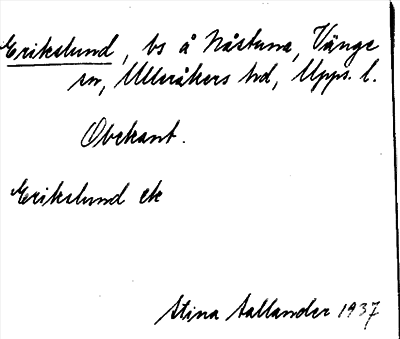 Erikslund, bs å Nåstuna, Vänge
sn, Ulleråkers hd, Upps. l.
Obekant.
Erikslund ek
Stina Sallander 1937